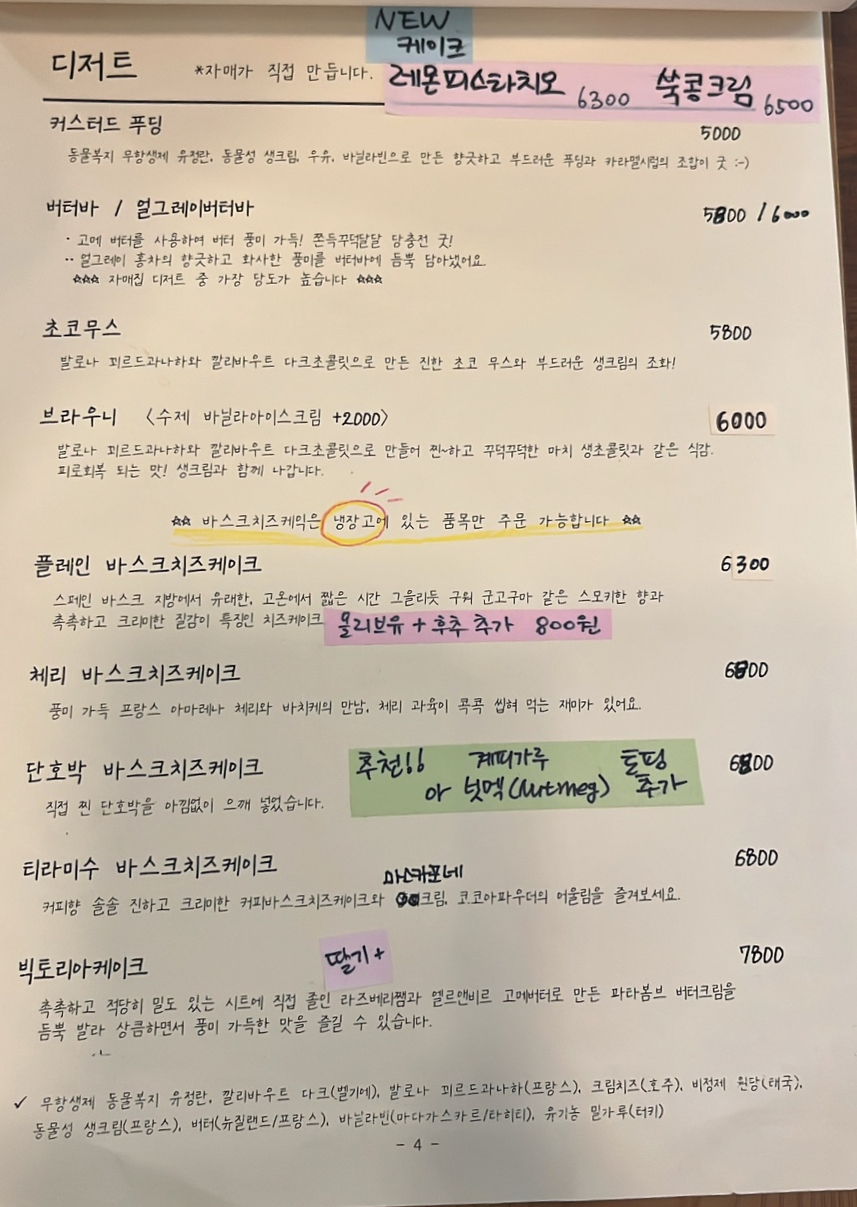 NEW
케이크
디저트 *자매가 직접 만듭니다. 레몬피스타치오 6300 쑥콩크림 6500
커스터드 푸딩 5000
동물복지 무항생제 유정란, 동물성 생크림, 우유, 바닐라빈으로 만든 향긋하고 부드러운 푸딩과 카라멜시럽의 조합이 굿 :-)
버터바 / 얼그레이버터바 5800 / 6000
· 고메 버터를 사용하여 버터 풍미 가득! 쫀득꾸덕달달 당충전 굿!
·· 얼그레이 홍차의 향긋하고 화사한 풍미를 버터바에 듬뿍 담아냈어요.
☆☆☆ 자매집 디저트 중 가장 당도가 높습니다 ☆☆☆
초코무스 5800
발로나 꾀르드과나하와 깔리바우트 다크초콜릿으로 만든 진한 초코 무스와 부드러운 생크림의 조화!
브라우니 〈수제 바닐라아이스크림 +2000〉 6000
발로나 꾀르드과나하와 깔리바우트 다크초콜릿으로 만들어 찐~하고 꾸덕꾸덕한 마치 생초콜릿과 같은 식감.
피로회복 되는 맛! 생크림과 함께 나갑니다.
☆☆ 바스크치즈케익은 냉장고에 있는 품목만 주문 가능합니다 ☆☆
플레인 바스크치즈케이크 6300
스페인 바스크 지방에서 유래한, 고온에서 짧은 시간 그을리듯 구워 군고구마 같은 스모키한 향과
촉촉하고 크리미한 질감이 특징인 치즈케이크 올리브유 + 후추 추가 800원
체리 바스크치즈케이크 6800
풍미 가득 프랑스 아마레나 체리와 바치케의 만남, 체리 과육이 콕콕 씹혀 먹는 재미가 있어요.
단호박 바스크치즈케이크 추천!! 계피가루 토핑 6800
직접 찐 단호박을 아낌없이 으깨 넣었습니다. or 넛멕(nutmeg) 추가
티라미수 바스크치즈케이크 6800
마스카포네
커피향 솔솔 진하고 크리미한 커피바스크치즈케이크와 크림, 코코아파우더의 어울림을 즐겨보세요.
빅토리아케이크 딸기+ 7800
촉촉하고 적당히 밀도 있는 시트에 직접 졸인 라즈베리쨈과 엘르앤비르 고메버터로 만든 파타봄브 버터크림을
듬뿍 발라 상큼하면서 풍미 가득한 맛을 즐길 수 있습니다.
✓ 무항생제 동물복지 유정란, 깔리바우트 다크(벨기에), 발로나 꾀르드과나하(프랑스), 크림치즈(호주), 비정제 원당(태국),
동물성 생크림(프랑스), 버터(뉴질랜드/프랑스), 바닐라빈(마다가스카르/타히티), 유기농 밀가루(터키)
- 4 -